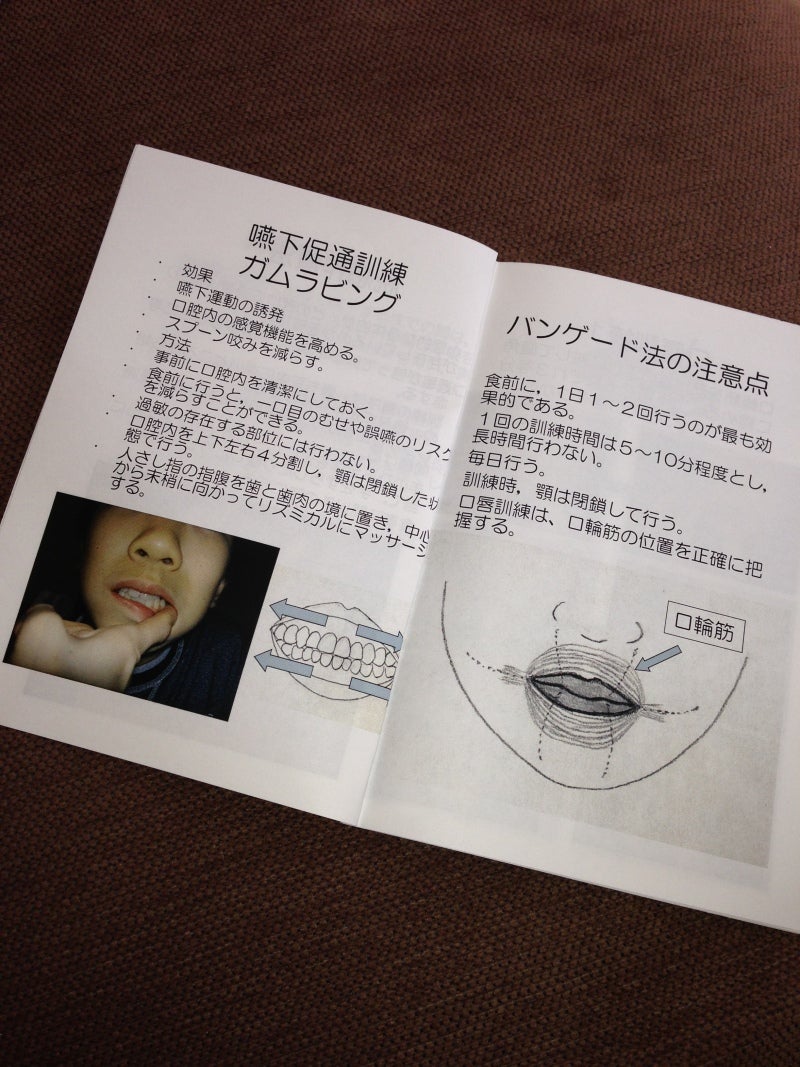 嚥下促通訓練
ガムラビング
・ 効果
・ 嚥下運動の誘発
・ 口腔内の感覚機能を高める。
・ スプーン咬みを減らす。
・ 方法
・ 事前に口腔内を清潔にしておく。
・ 食前に行うと，一口目のむせや誤嚥のリスク
を減らすことができる。
・ 過敏の存在する部位には行わない。
・ 口腔内を上下左右４分割し，顎は閉鎖した状
態で行う。
・ 人さし指の指腹を歯と歯肉の境に置き，中心
から末梢に向かってリズミカルにマッサージ
する。
バンゲード法の注意点
食前に，１日１～２回行うのが最も効
果的である。
１回の訓練時間は５～10分程度とし，
長時間行わない。
毎日行う。
訓練時，顎は閉鎖して行う。
口唇訓練は、口輪筋の位置を正確に把
握する。
口輪筋